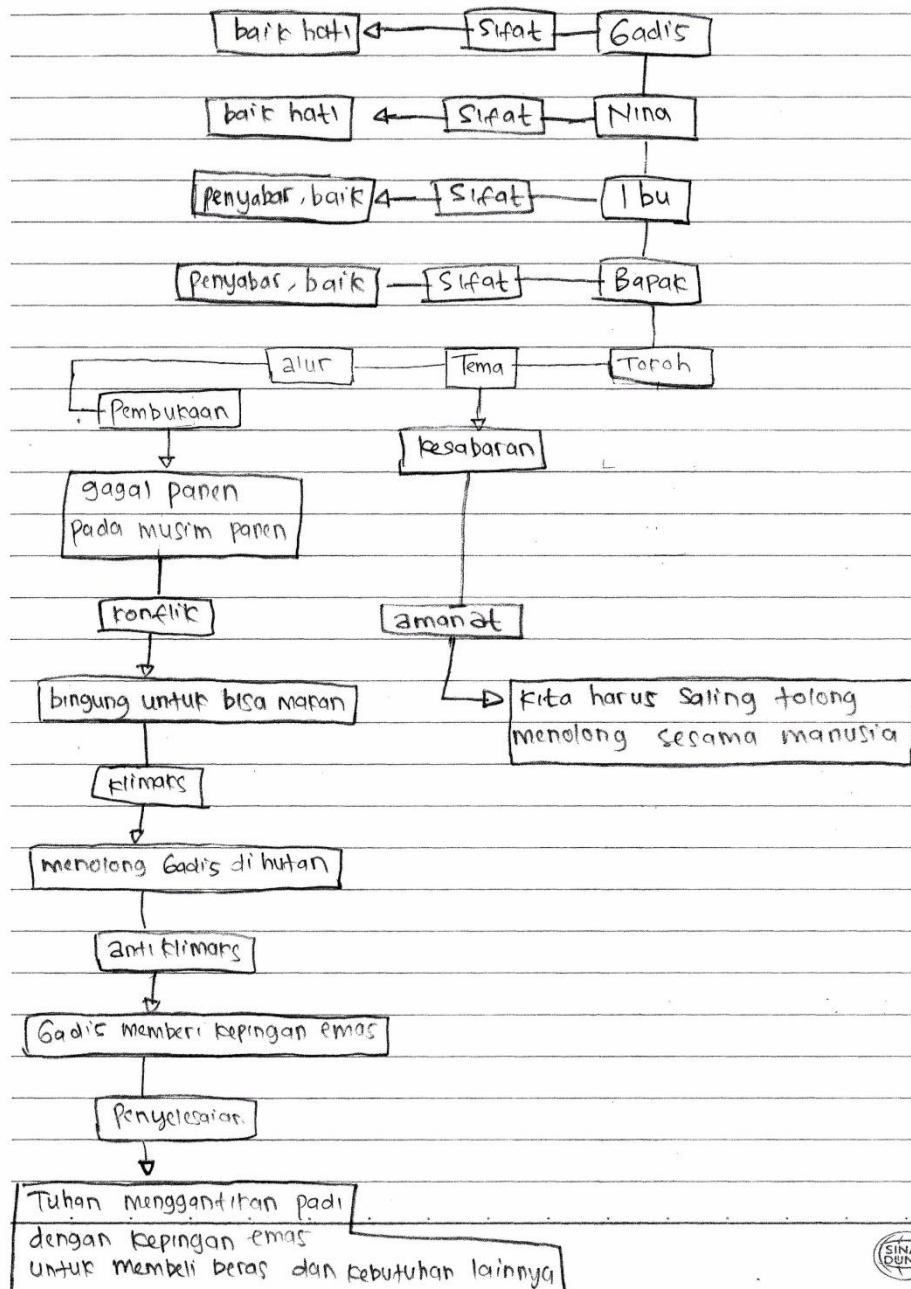 baik hati Sifat Gadis
baik hati Sifat Nina
penyabar, baik Sifat Ibu
penyabar, baik Sifat Bapak
alur Tema Tokoh
Pembukaan
kesabaran
gagal panen
pada musim panen
konflik
amanat
bingung untuk bisa makan
kita harus saling tolong
menolong sesama manusia
klimaks
menolong Gadis di hutan
anti klimaks
Gadis memberi kepingan emas
Penyelesaian
Tuhan menggantikan padi
dengan kepingan emas
untuk membeli beras dan kebutuhan lainnya